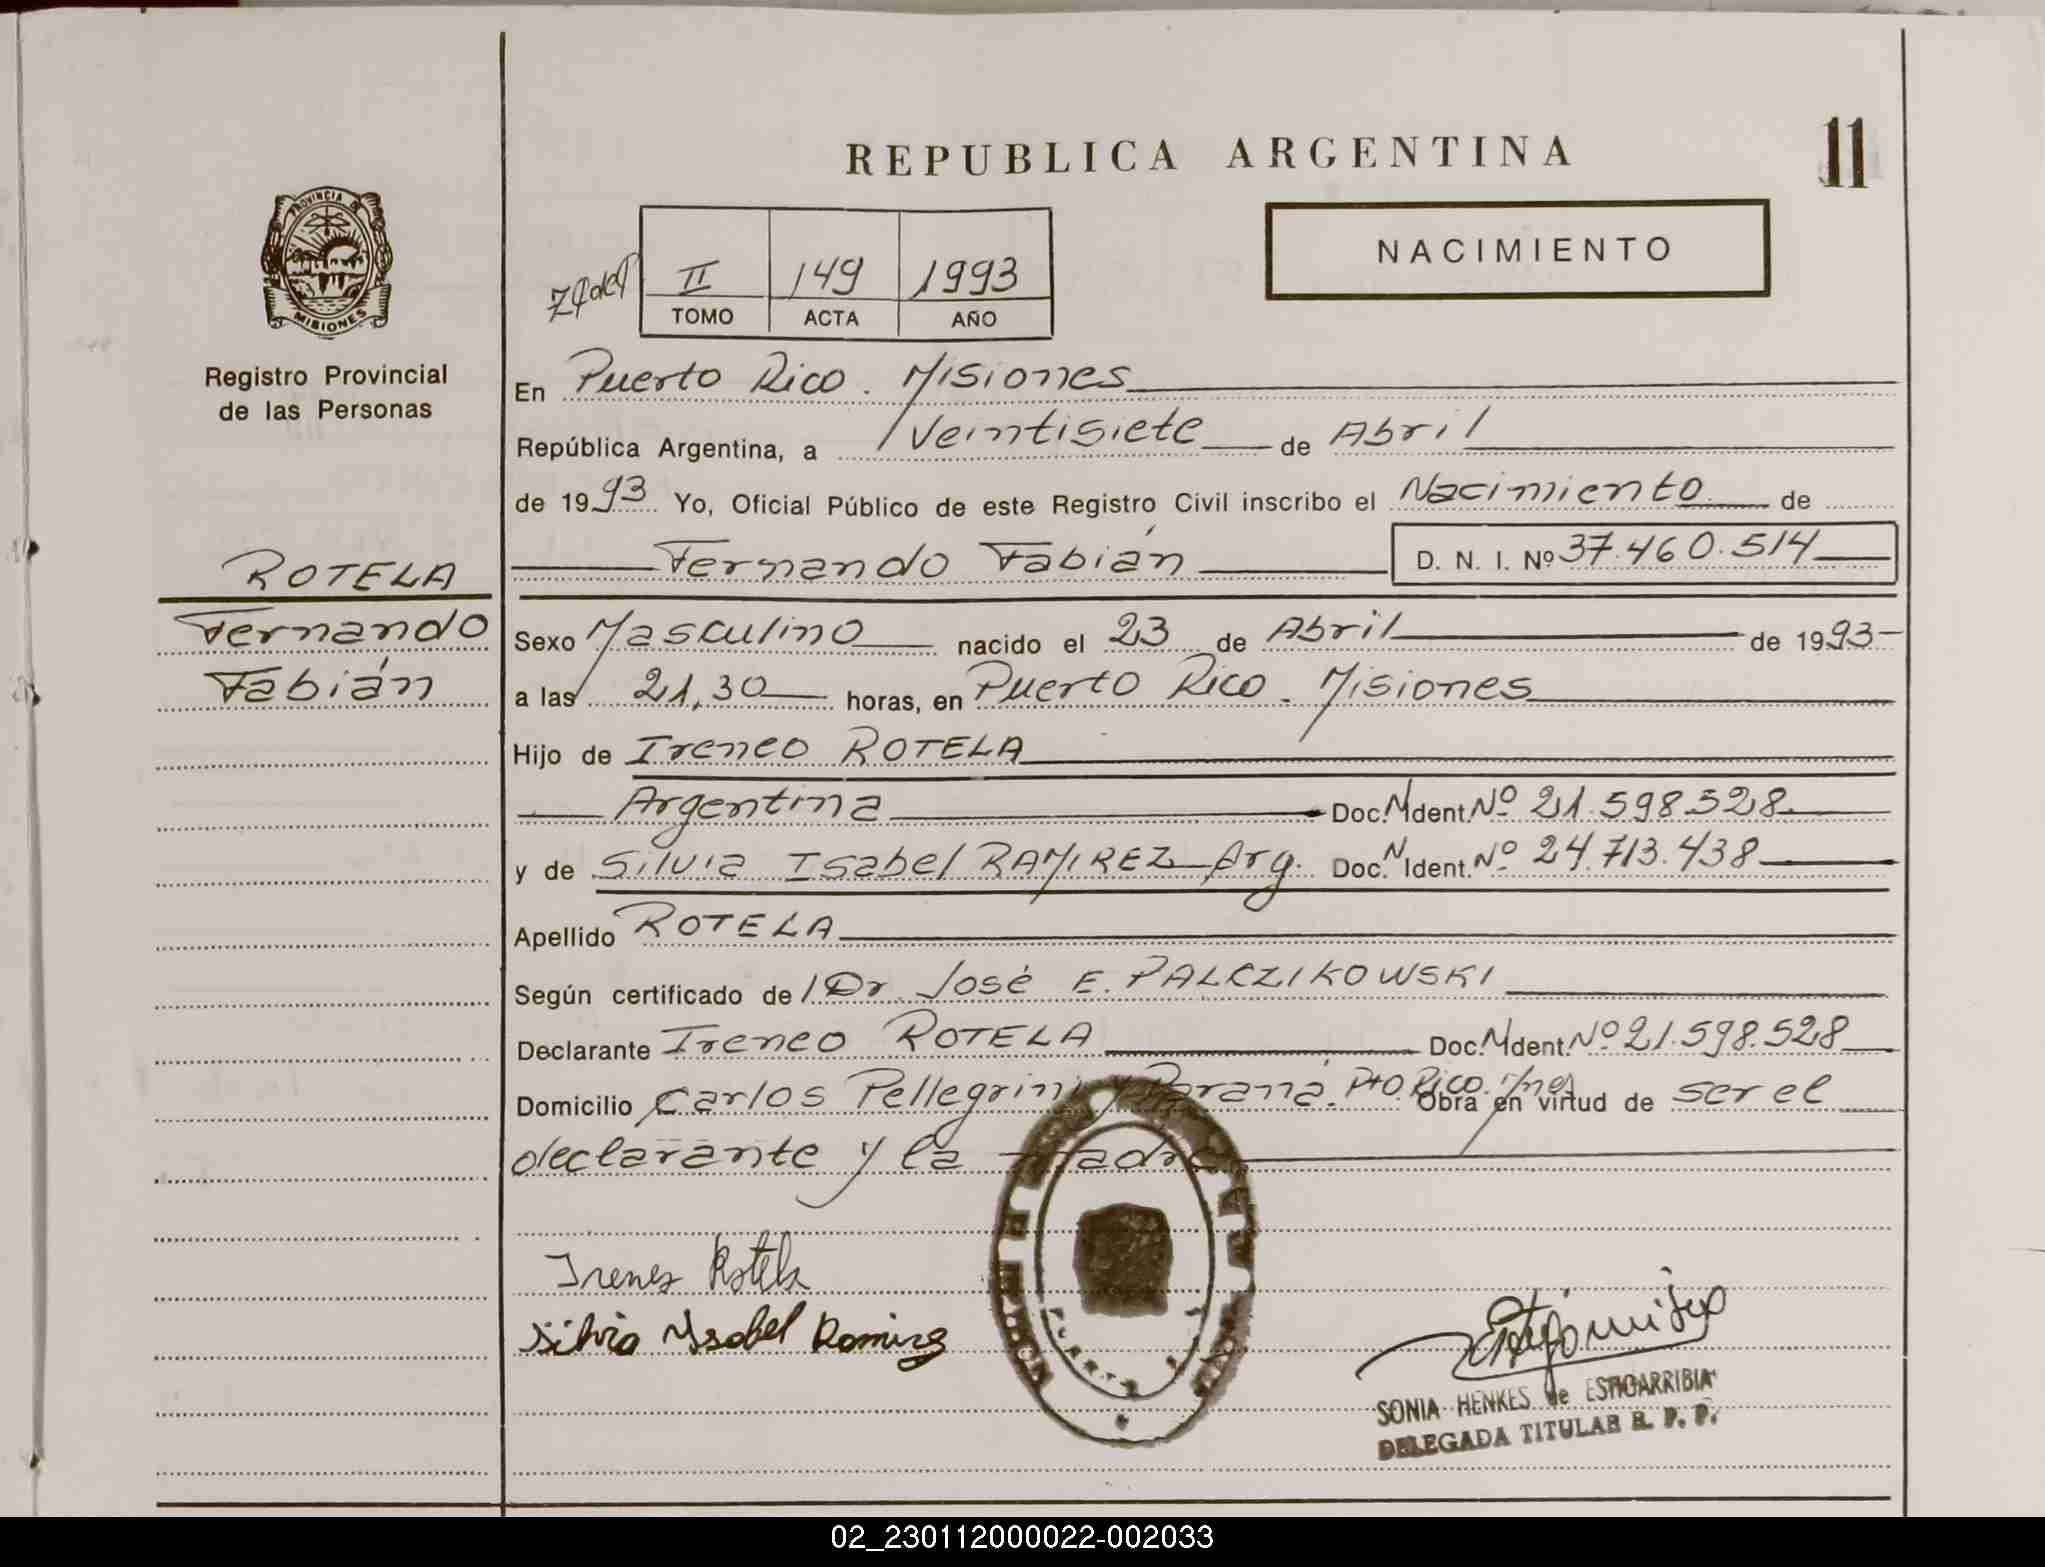 REPUBLICA ARGENTINA
11
PROVINCIA DE
MISIONES
II 149 1993
TOMO ACTA AÑO
NACIMIENTO
Registro Provincial
de las Personas
En Puerto Rico. Misiones
República Argentina, a Veintisiete de Abril
de 1993 Yo, Oficial Público de este Registro Civil inscribo el Nacimiento de
ROTELA
Fernando
Fabián
Fernando Fabián D. N. I. Nº 37.460.514
Sexo Masculino nacido el 23 de Abril de 1993
a las 21,30 horas, en Puerto Rico. Misiones
Hijo de Ireneo ROTELA
Argentina Doc. N Ident. Nº 21.598.528
y de Silvia Isabel RAMIREZ Arg. Doc. N Ident. Nº 24.713.438
Apellido ROTELA
Según certificado de l Dr. José E. PALCZIKOWSKI
Declarante Ireneo ROTELA Doc. N Ident. Nº 21.598.528
Domicilio Carlos Pellegrini y Paraná. Pto Rico. Mnes Obra en virtud de ser el
declarante y la madre
Ireneo Rotela
Silvia Ysabel Ramirez
SONIA HENKES de ESTIGARRIBIA
DELEGADA TITULAR R. P. P.
02_230112000022-002033